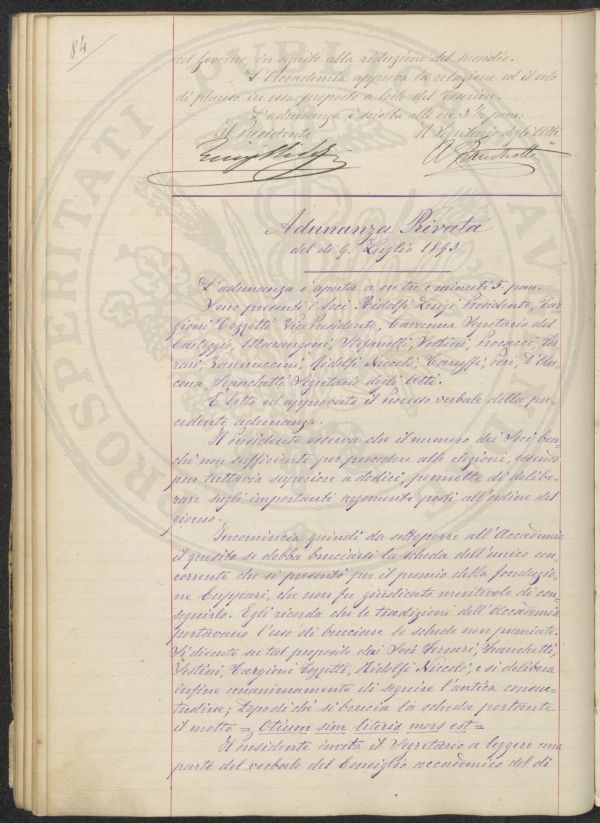 84
col governo in seguito alla riduzione del sussidio.
L'Accademia approva la relazione ed il voto
di plauso in essa proposto a lode del Tesoriere.
L'adunanza è sciolta alle ore 3 ½ pom:
Il Presidente Il Segretario degli Atti
Luigi Ridolfi A Franchetti
Adunanza Privata
del dì 9. Luglio 1893
L'adunanza è aperta a ore tre e minuti 5 pom.
Sono presenti i Soci Ridolfi Luigi Presidente, Tar-
gioni Tozzetti Vice Presidente, Caruana Segretario del
Carteggio, Marangoni, Stefanelli, Vestini, Procacci, Fer-
rari, Vannuccini, Ridolfi Niccolò, Caruffi, Peri, D'An-
cona, Franchetti Segretario degli Atti.
È letto ed approvato il Processo verbale della pre-
cedente adunanza.
Il Presidente osserva che il numero dei Soci ben-
chè non sufficiente per procedere alle elezioni, essendo
pur tuttavia superiore a dodici, permette di delibe-
rare sugli importanti argomenti posti all'ordine del
giorno.
Incomincia quindi da sottoporre all'Accademia
il quesito se debba bruciarsi la scheda dell'unico con-
corrente che si presentò per il premio della fondazio-
ne Cuppari, che non fu giudicato meritevole di con-
seguirlo. Egli ricorda che le tradizioni dell'Accademia
portavano l'uso di bruciare le schede non premiate.
Si discute su tal proposito dai Soci Ferrari, Franchetti,
Vestini, Targioni Tozzetti, Ridolfi Niccolò, e si delibera
infine unanimamente di seguire l'antica consue-
tudine; dopodiché si brucia la scheda portante
il motto = Otium sine literis mors est =
Il Presidente invita il Segretario a leggere una
parte del verbale del Consiglio accademico del dì
PROSPERITATI PUBLICAE